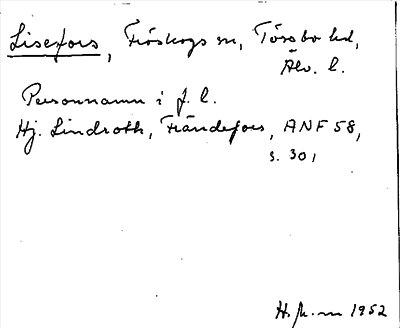 Lisefors, Fröskogs sn, Tössbo hd,
Älv. l.
Personnamn i f. l.
Hj. Lindroth, Frändefors, ANF 58,
s. 301
1952